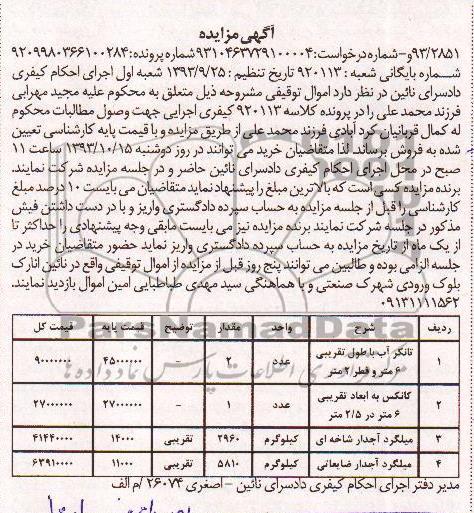 آگهی مزایده
۹۳/۲۸۵۱و-شماره درخواست:۹۳۱۰۴۶۳۷۲۹۱۰۰۰۰۴ شماره پرونده:۹۲۰۹۹۸۰۳۶۶۱۰۰۲۸۴
شماره بایگانی شعبه : ۹۲۰۱۱۳ تاریخ تنظیم : ۱۳۹۳/۹/۲۵ شعبه اول اجرای احکام کیفری
دادسرای نائین در نظر دارد اموال توقیفی مشروحه ذیل متعلق به محکوم علیه مجید مهرابی
فرزند محمد علی را در پرونده کلاسه ۹۲۰۱۱۳ کیفری اجرایی جهت وصول مطالبات محکوم
له کمال قربانیان کرد آبادی فرزند محمد علی از طریق مزایده و با قیمت پایه کارشناسی تعیین
شده به فروش برساند لذا متقاضیان خرید می توانند در روز دوشنبه ۱۳۹۳/۱۰/۱۵ ساعت ۱۱
صبح در محل اجرای احکام کیفری دادسرای نائین حاضر و در جلسه مزایده شرکت نمایند.
برنده مزایده کسی است که بالاترین مبلغ را پیشنهاد نماید متقاضیان می بایست ۱۰ درصد مبلغ
کارشناسی را قبل از جلسه مزایده به حساب سپرده دادگستری واریز و با در دست داشتن فیش
مذکور در جلسه شرکت نمایند برنده مزایده نیز می بایست مابقی وجه پیشنهادی را حداکثر تا
از یک ماه از تاریخ مزایده به حساب سپرده دادگستری واریز نماید حضور متقاضیان خرید در
جلسه الزامی بوده و طالبین می توانند پنج روز قبل از مزایده از اموال توقیفی واقع در نائین انارک
بلوک ورودی شهرک صنعتی و با هماهنگی سید مهدی طباطبایی امین اموال بازدید نمایند.
۰۹۱۳۱۱۱۱۵۶۲
ردیف شرح واحد مقدار توضیح قیمت پایه قیمت کل
۱ تانکر آب با طول تقریبی ۶ متر و قطر ۲ متر عدد ۲ - ۴۵۰۰۰۰۰۰ ۹۰۰۰۰۰۰۰
۲ کانکس به ابعاد تقریبی ۶ متر در ۲/۵ متر عدد ۱ - ۲۷۰۰۰۰۰۰ ۲۷۰۰۰۰۰۰
۳ میلگرد آجدار شاخه ای کیلوگرم ۲۹۶۰ تقریبی ۱۴۰۰۰ ۴۱۴۴۰۰۰۰
۴ میلگرد آجدار ضایعاتی کیلوگرم ۵۸۱۰ تقریبی ۱۱۰۰۰ ۶۳۹۱۰۰۰۰
مدیر دفتر اجرای احکام کیفری دادسرای نائین - اصغری ۲۶۰۷۴ /م الف
ParsNamadData